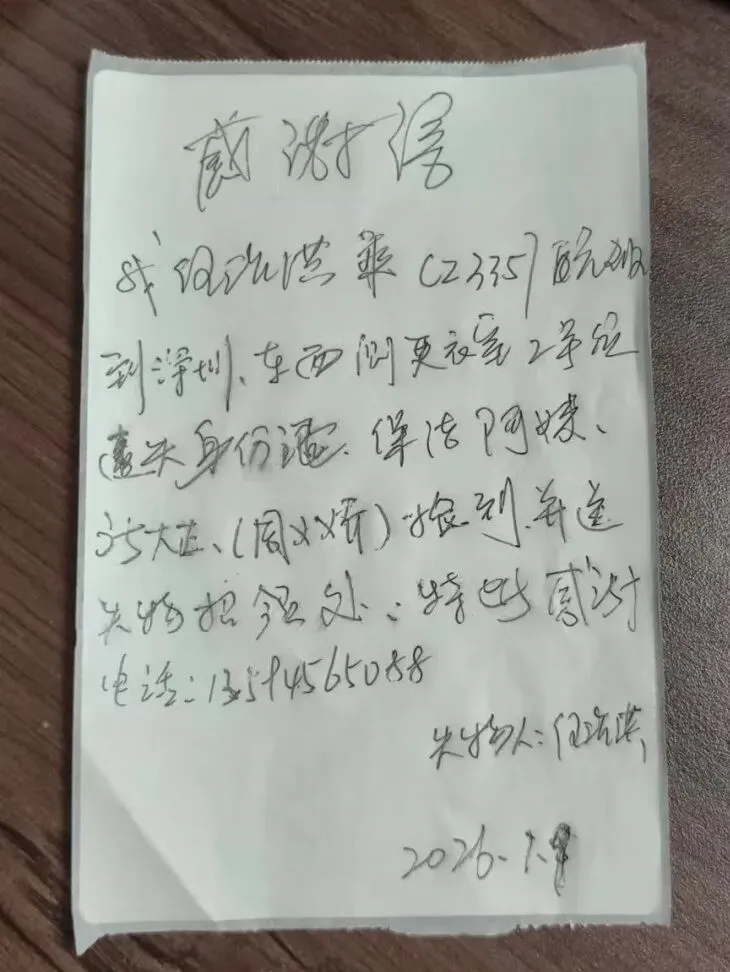 感谢信
我任治洪乘CZ3357航班
到深圳、在西侧更衣室2号位
遗失身份证、保洁阿姨、
35大道、(周义娇)捡到、并送
失物招领处、特此感谢
电话:13594565088
失物人:任治洪
2026.1.9